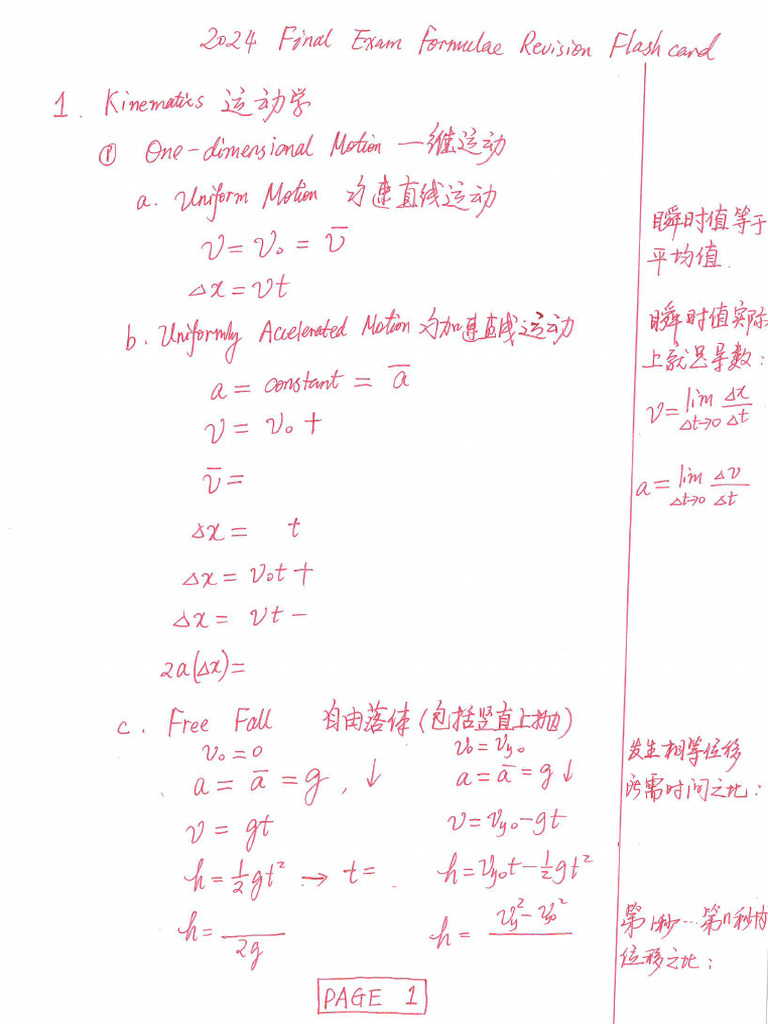 2024 Final Exam Formulae Revision Flash card
1. Kinematics 运动学
① One-dimensional Motion 一维运动
a. Uniform Motion 匀速直线运动
v = v₀ = v̄
Δx = vt
b. Uniformly Accelerated Motion 匀加速直线运动
a = constant = a̅
v = v₀ +
v̄ =
Δx = t
Δx = v₀t +
Δx = vt −
2a(Δx) =
c. Free Fall 自由落体(包括竖直上抛)
v₀ = 0
a = a̅ = g, ↓
v = gt
h = ½gt² → t =
h = /2g
v₀ = v_y₀
a = a̅ = g ↓
v = v_y₀ − gt
h = v_y₀t − ½gt²
h = v_y² − v_y₀²/
瞬时值等于
平均值.
瞬时值实际
上就是导数:
v = lim Δt→0 Δx/Δt
a = lim Δt→0 Δv/Δt
发生相等位移
所需时间之比:
第1秒…第n秒内
位移之比:
PAGE 1